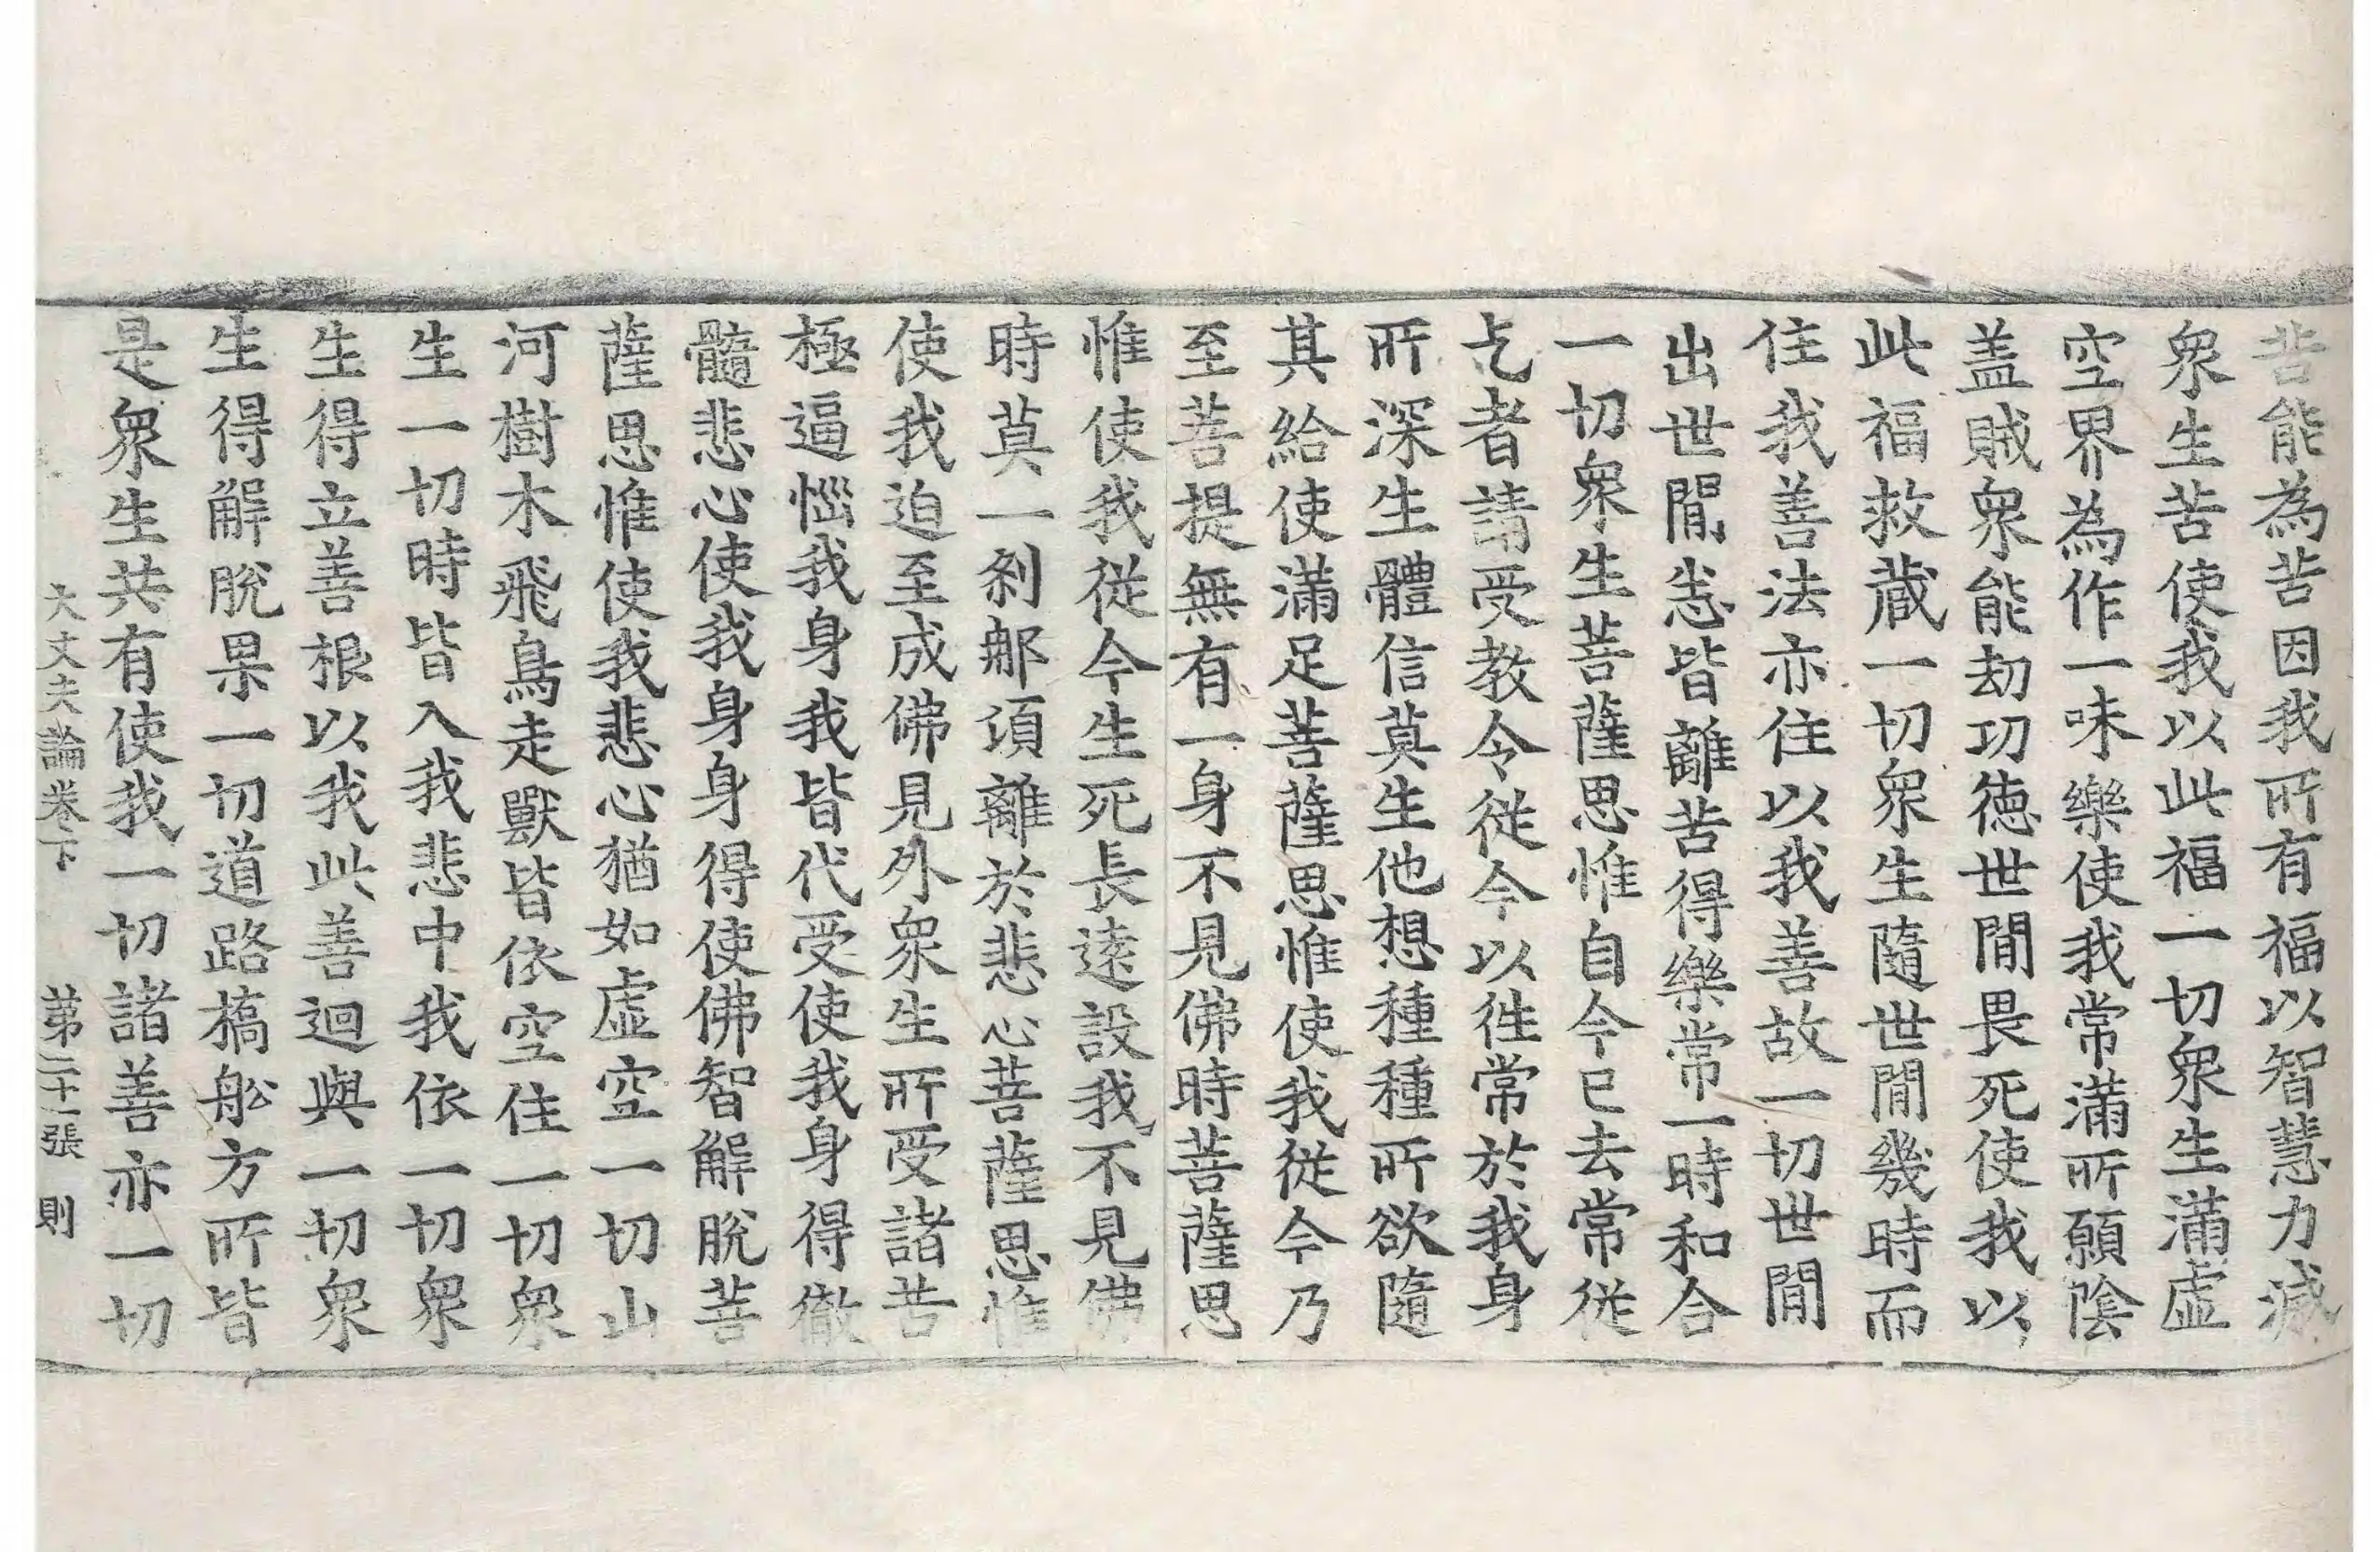 苦能為苦因我所有福以智慧力滅
衆生苦使我以此福一切衆生滿虛
空界為作一味樂使我常滿所願陰
盖賊衆能劫功德世閒畏死使我以
此福救蔵一切衆生隨世閒幾時而
住我善法亦住以我善故一切世閒
出世閒悉皆離苦得樂常一時和合
一切衆生菩薩思惟自今已去常從
乞者請受教令從今以往常於我身
所深生體信莫生他想種種所欲隨
其給使滿足菩薩思惟使我從今乃
至菩提無有一身不見佛時菩薩思
惟使我從今生死長遠設我不見佛
時莫一剎那頃離於悲心菩薩思惟
使我迫至成佛見外衆生所受諸苦
極逼惱我身我皆代受使我身得徹
髓悲心使我身身得使佛智解脫菩
薩思惟使我悲心猶如虛空一切山
河樹木飛鳥走獸皆依空住一切衆
生一切時皆入我悲中我依一切衆
生得立善根以我此善迴與一切衆
生得解脫果一切道路橋舩方所皆
是衆生共有使我一切諸善亦一切
大丈夫論卷下　第二十一張　則